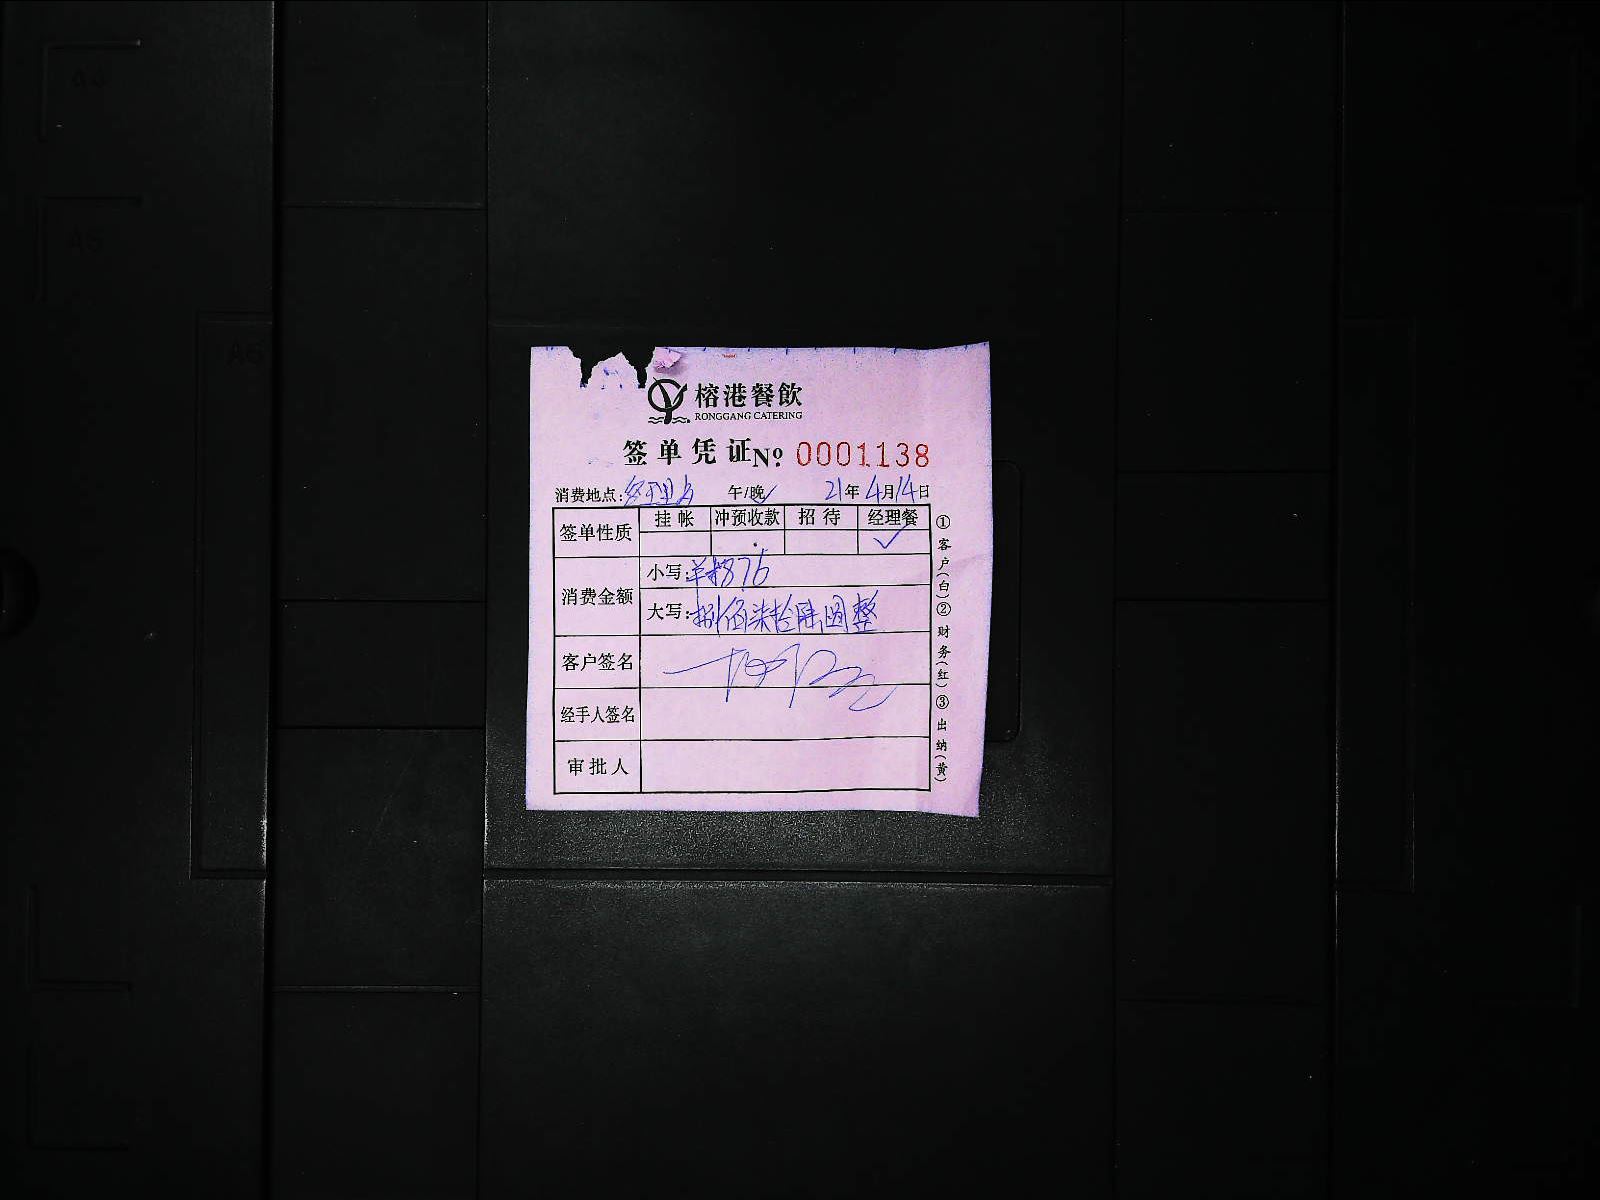 榕港餐飲
RONGGANG CATERING
签单凭证 Nº 0001138
消费地点: 午/晚✓ 21年4月14日
签单性质 挂帐 冲预收款 招待 经理餐
✓
消费金额 小写: 876
大写: 捌佰柒拾陆圆整
客户签名
经手人签名
审批人
①客户(白)②财务(红)③出纳(黄)
A4
A5
A6